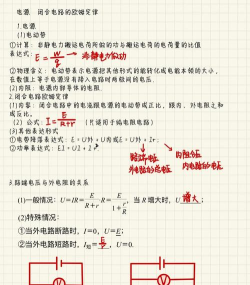 电源 闭合电路的欧姆定律
1.电源
(1)电动势
①计算：非静电力搬运电荷所做的功与搬运电荷的电荷量的比值
表达式：E = W/q → 非静电力做功
②物理含义：电动势表示电源把其他形式的能转化成电能本领的大小，
在数值上等于电源没有接入电路时两极间的电压。
(2)内阻：电源内部导体的电阻。
2.闭合电路欧姆定律
(1)内容：闭合电路中的电流跟电源的电动势成正比，跟内、外电阻之和
成反比。
(2)公式：I = E/R+r （只适用于纯电阻电路）
(3)其他表达形式
①电势降落表达式：E=U外+U内或E=U外+Ir；
②功率表达式：EI=UI+I²r
路端电压 内阻分压
外电路的总电压 内电路的电压
3.路端电压与外电阻的关系
(1)一般情况：U=IR=E/R+r·R=E/1+r/R，当R增大时，U增大；
(2)特殊情况：
①当外电路断路时，I=0，U=E；
②当外电路短路时，I短=E/r，U=0.
V
V